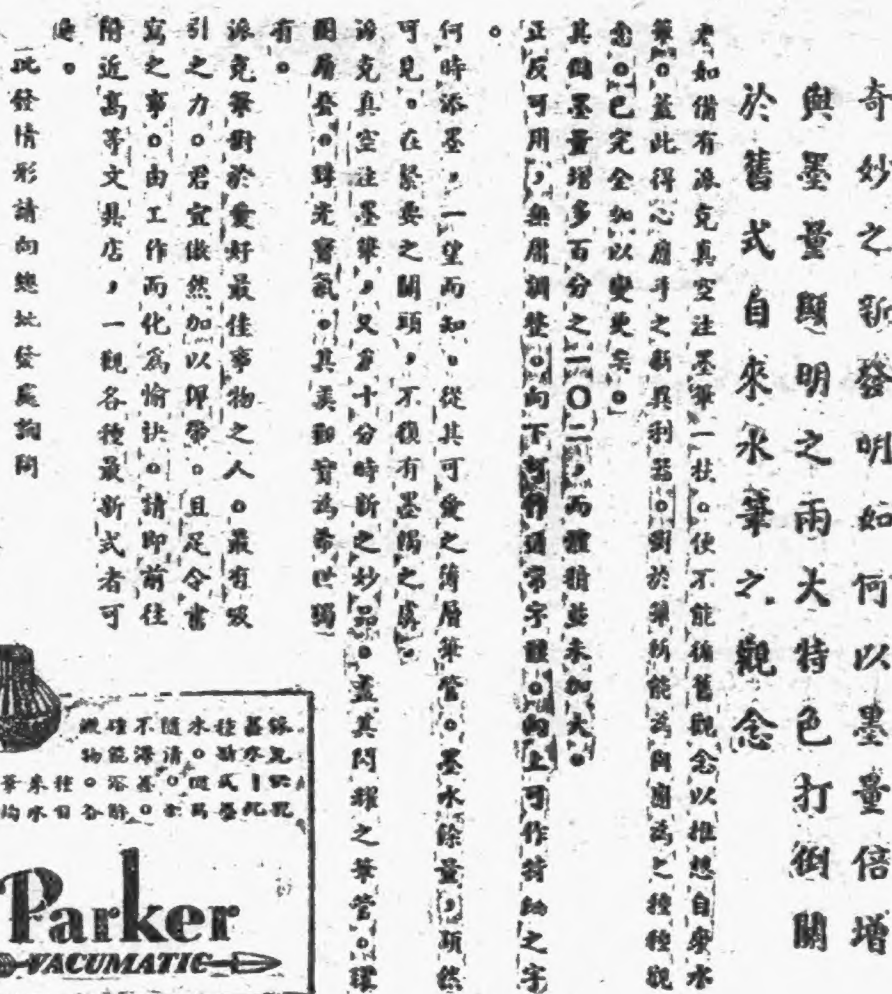 奇妙之新發明如何以墨量倍增
與墨量顯明之兩大特色打倒關
於舊式自來水筆之觀念
君如備有派克真空注墨筆一枝。便不能循舊觀念以推想自來水
筆。蓋此得心應手之新異利器。對於筆所能為與應為之種種觀
念。已完全加以變更矣。」
其儲墨量增多百分之一〇二，而體積並未加大。
正反可用，無需調整。向下可作通常字體。向上可作特細之字
。
何時添墨，一望而知。從其可愛之薄層筆管。墨水餘量，顯然
可見。在緊要之關頭，不復有墨竭之虞。
派克真空注墨筆，又為十分時新之妙品。蓋其閃耀之筆管。環
圈層叠。珠光寶氣。其美觀實為希世獨
有。
派克筆對於愛好最佳事物之人。最有吸
引之力。君宜傲然加以佩帶。且足令書
寫之事。由工作而化為愉快。請即前往
附近高等文具店，一觀各種最新式者可
也。
批發情形請向總批發處詢問
水。
隨清
不滓
物。各
種自
來水
筆均
Parker
VACUMATIC